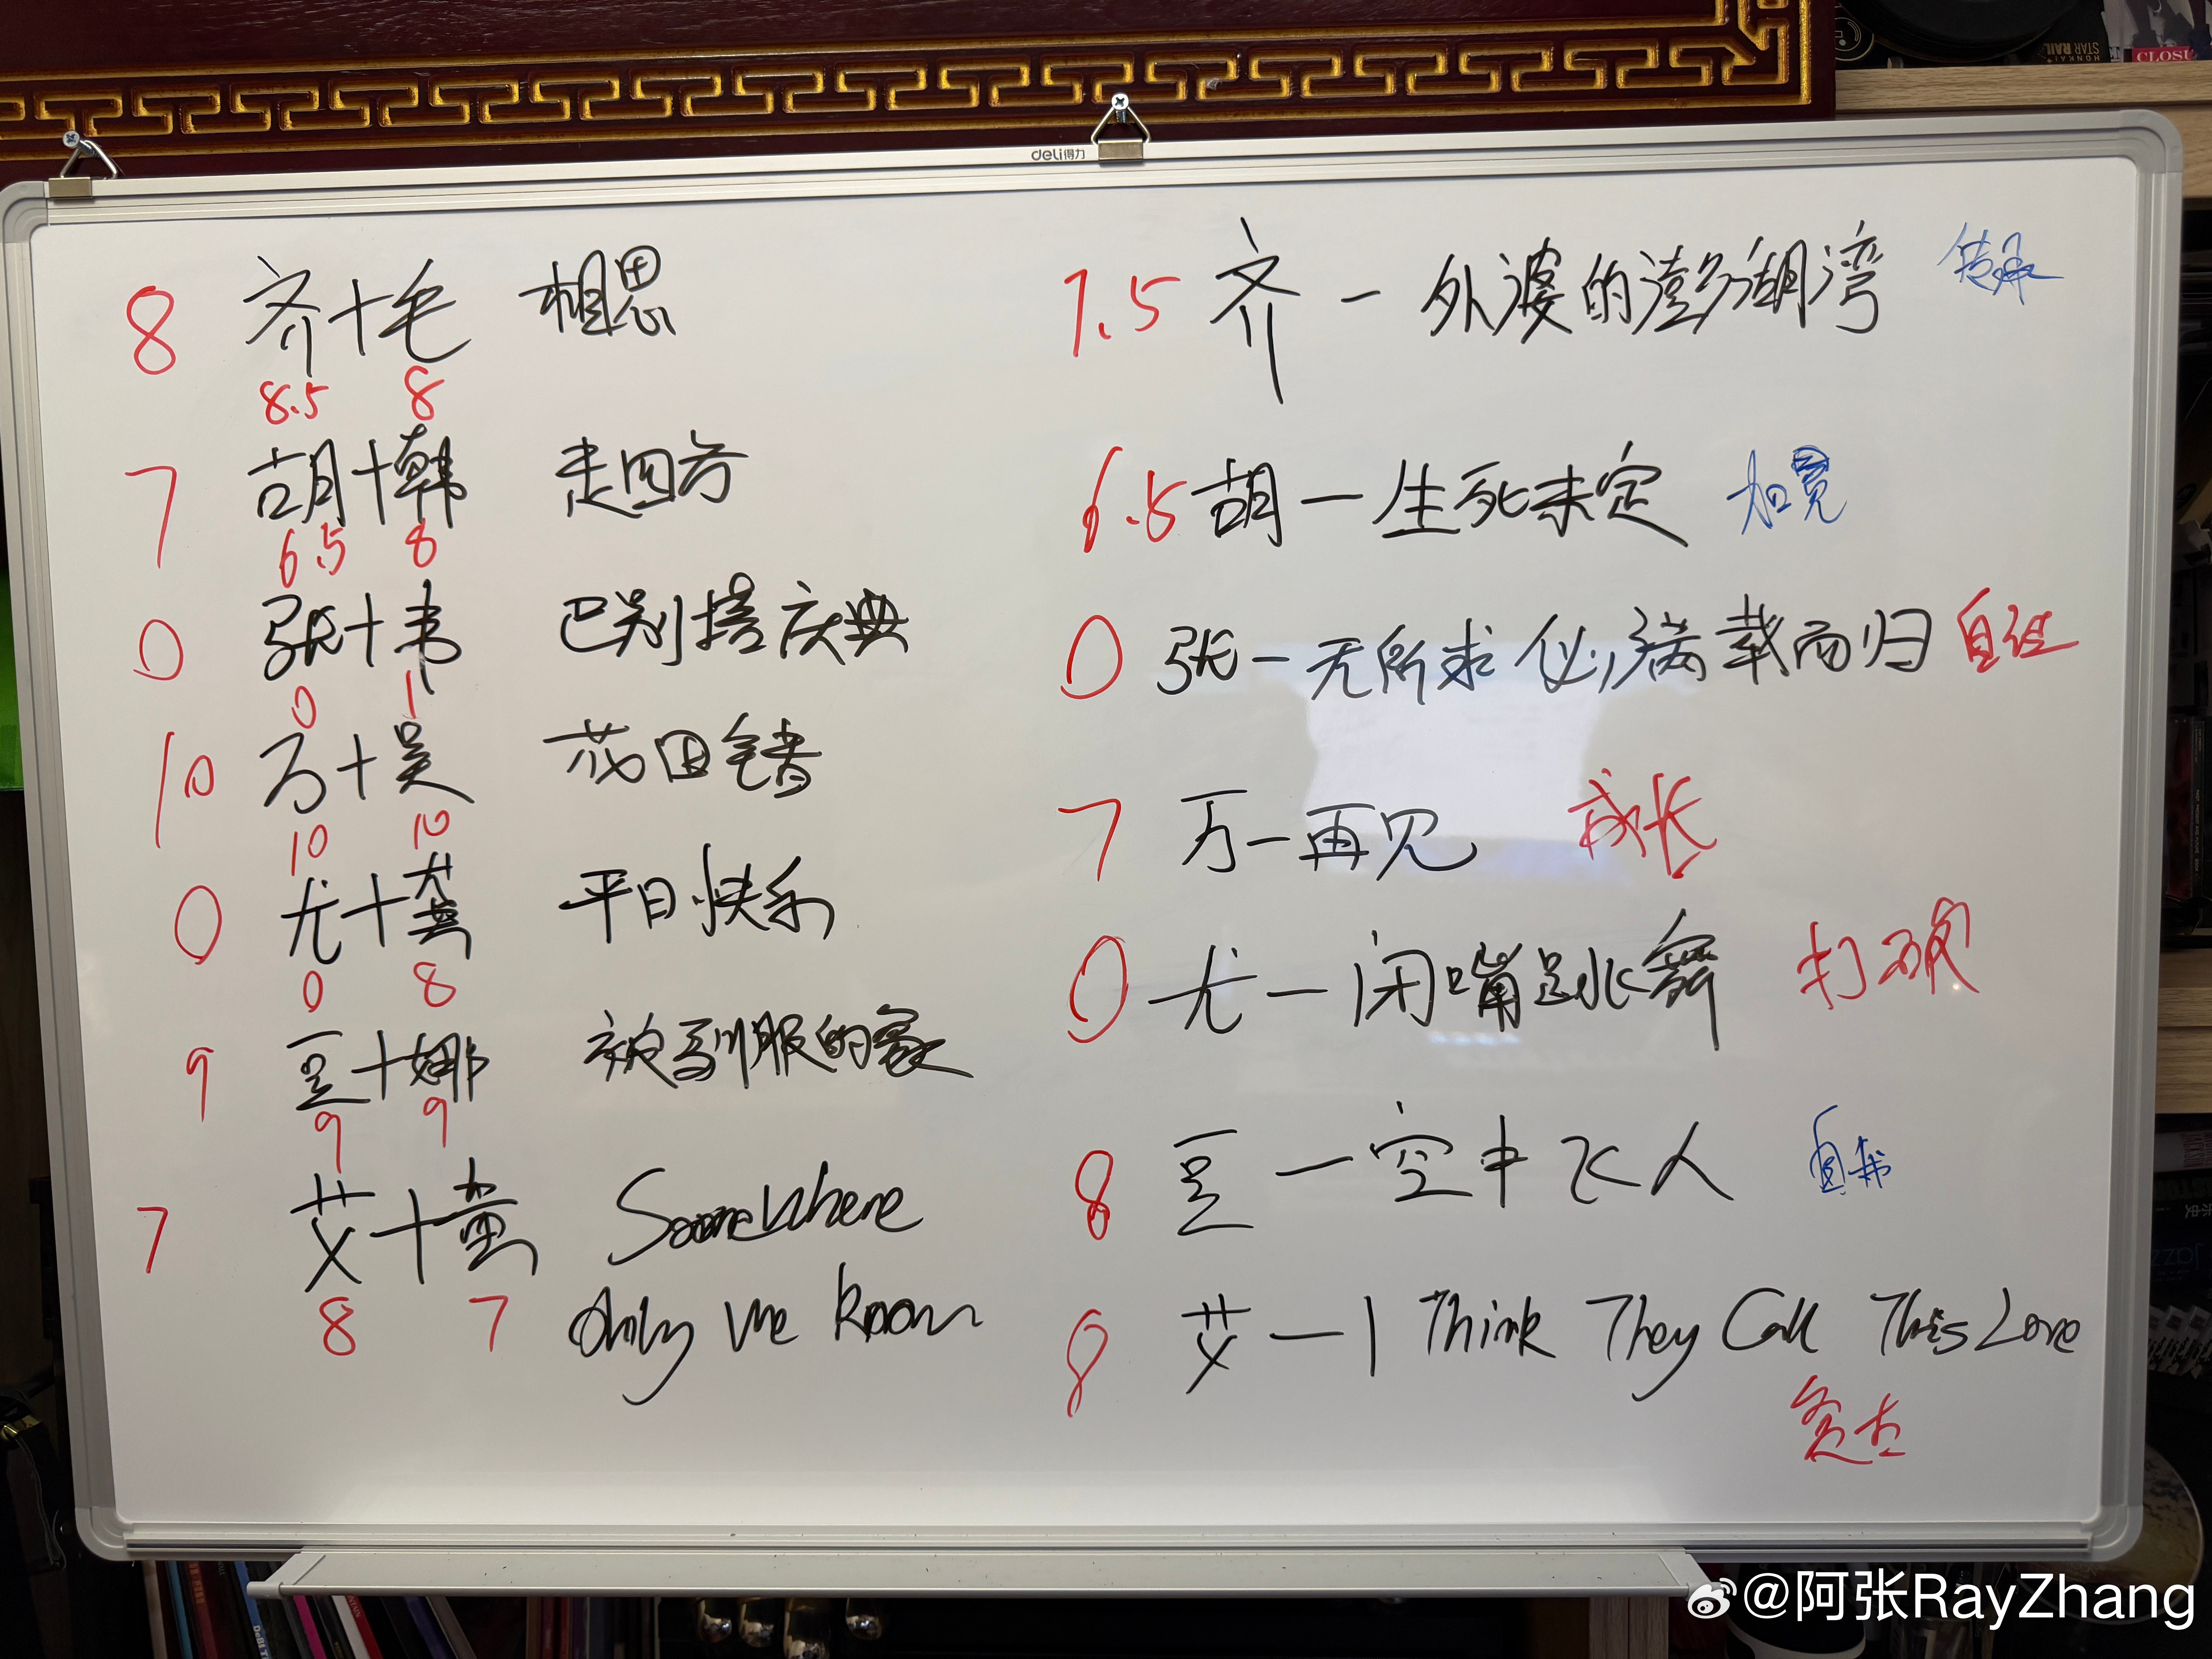 deli得力
8 齐+毛 相思
8.5 8
7 胡+韩 走四方
6.5 8
0 张+韦 巴别塔庆典
0 1
10 万+吴 花田错
10 10
0 尤+龚 平日快乐
0 8
9 豆+娜 被驯服的象
9 9
7 艾+黄 Somewhere
8 7 Only We Know
7.5 齐-外婆的澎湖湾 传承
6.5 胡-生死未定 加冕
0 张-无所求必满载而归 自征
7 万-再见 成长
0 尤-闭嘴跳舞 打破
8 豆-空中飞人 自我
8 艾-I Think They Call This Love
STAR RAIL
CLOSE
@阿张RayZhang